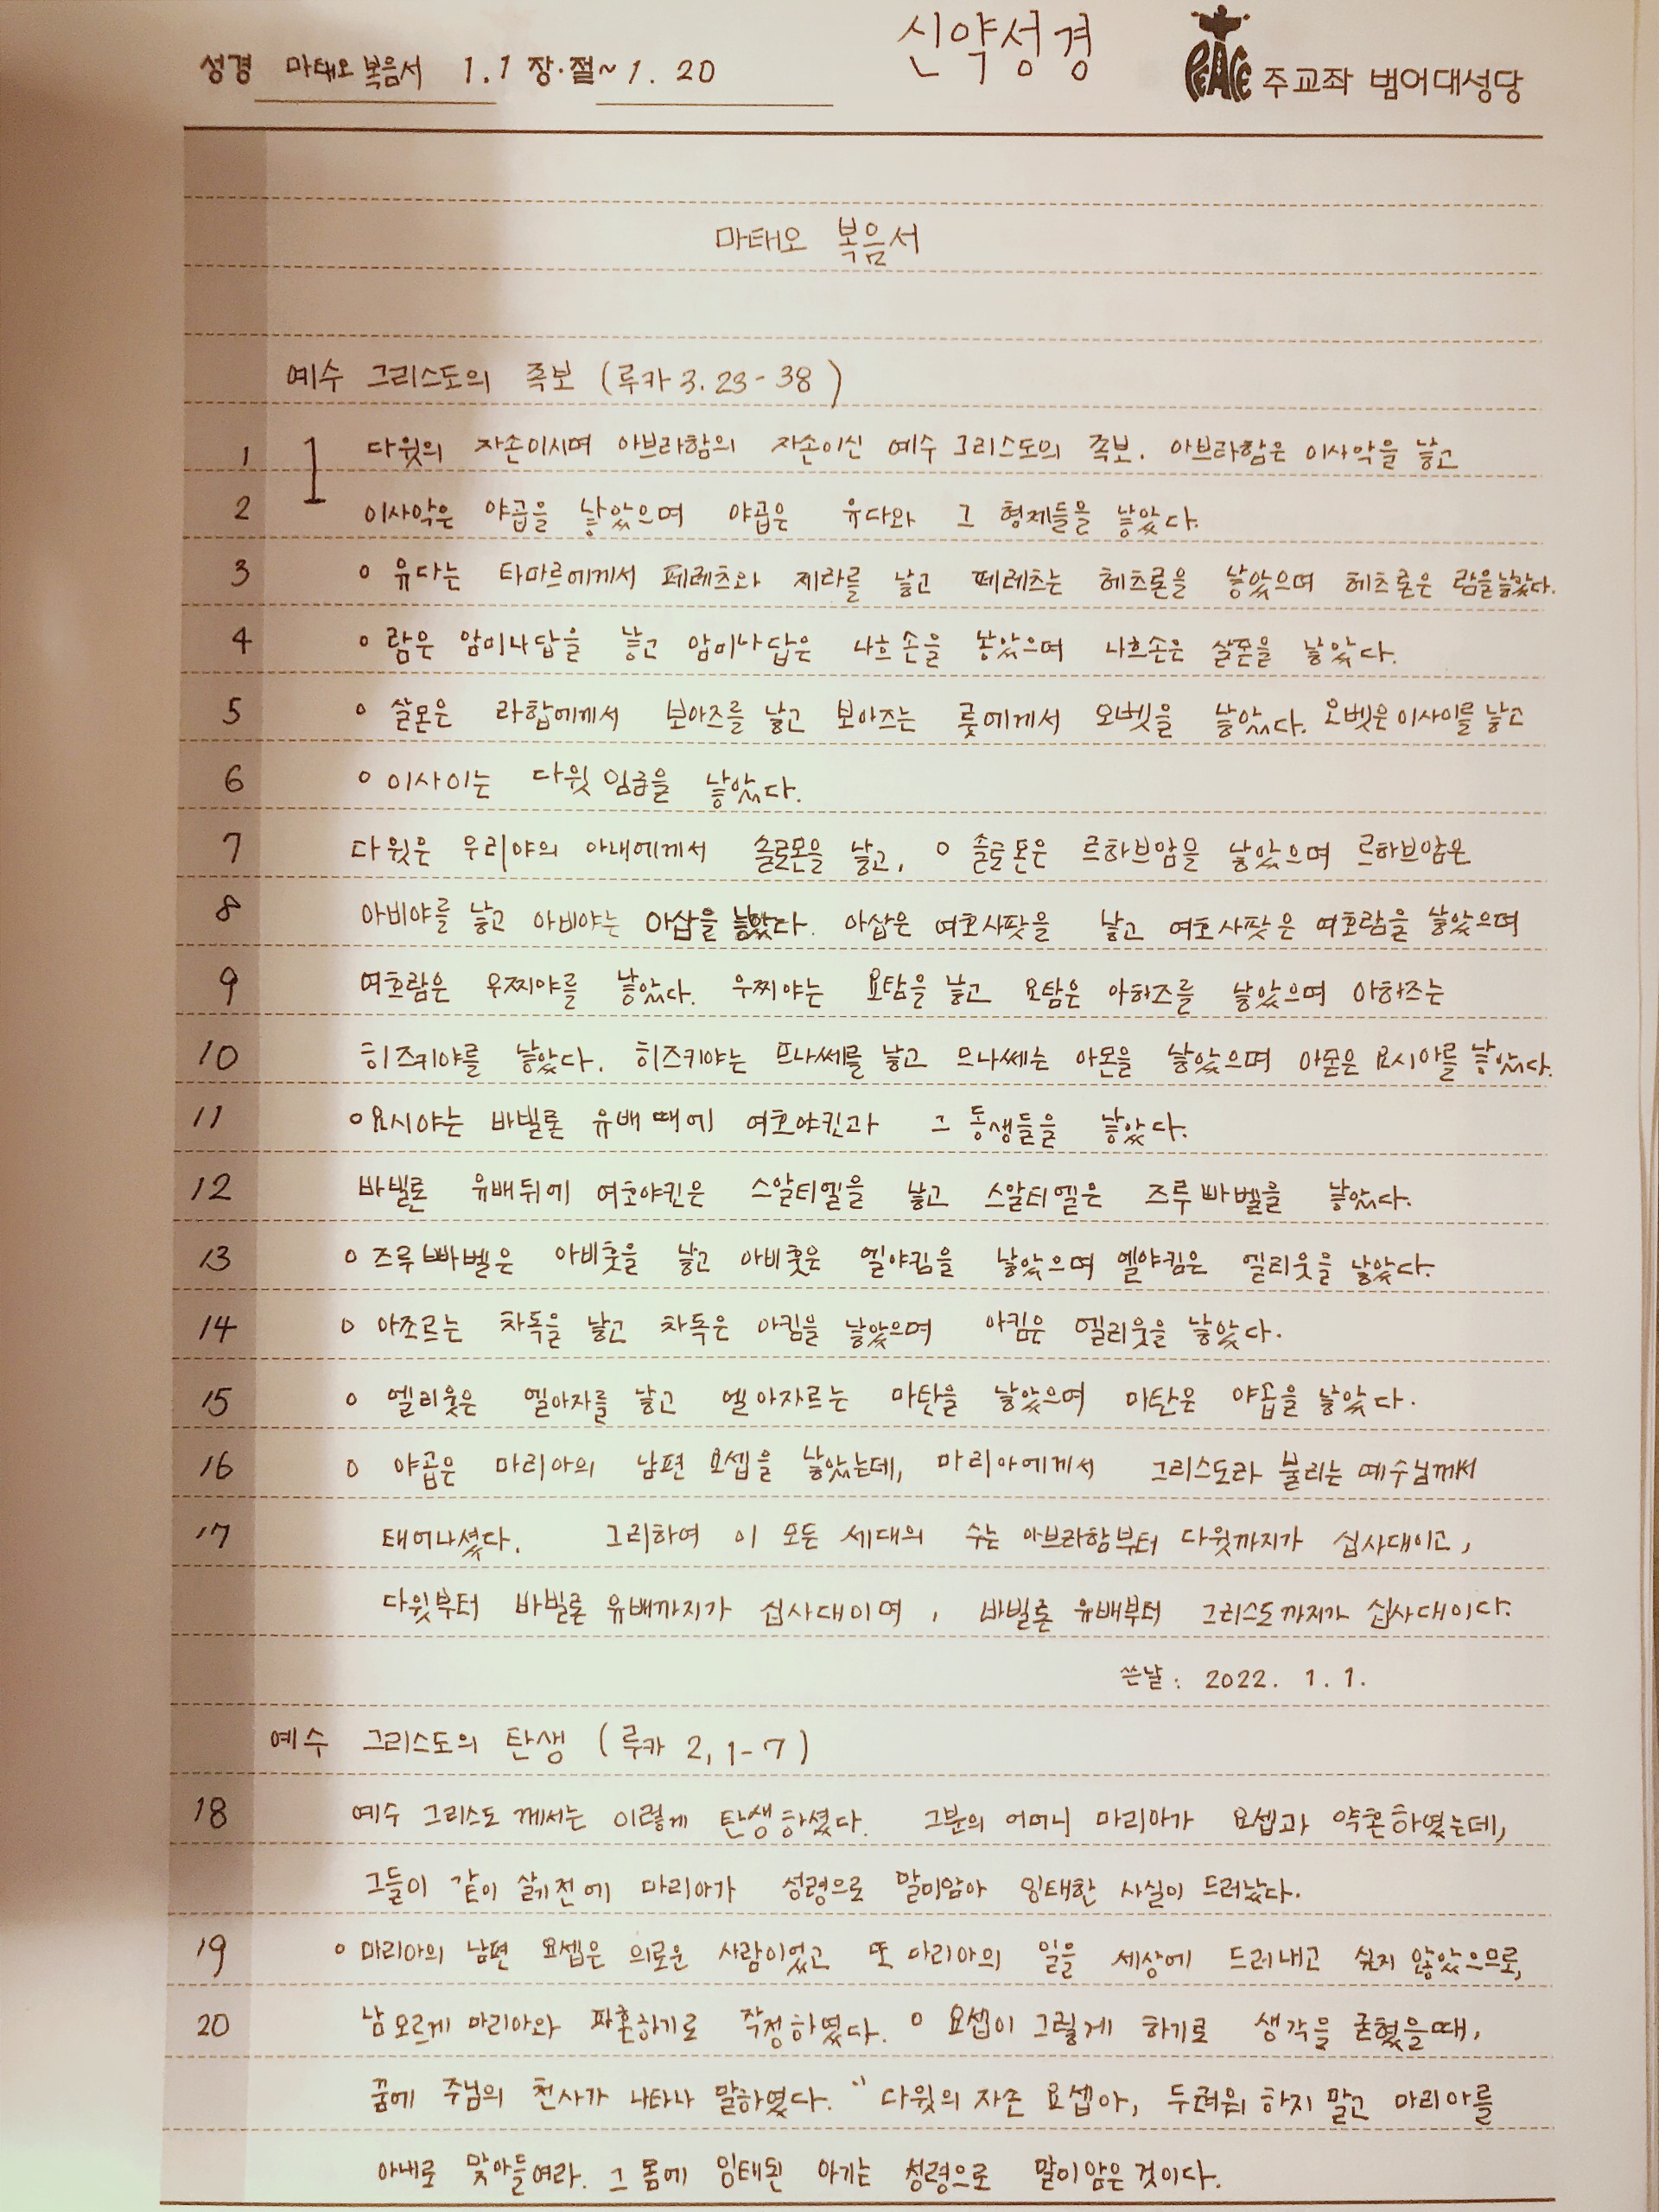 신약성경
성경 마태오 복음서 1.1 장·절~ 1. 20 PEACE 주교좌 범어대성당
마태오 복음서
예수 그리스도의 족보 (루카 3. 23-38)
1 1 다윗의 자손이시며 아브라함의 자손이신 예수 그리스도의 족보. 아브라함은 이사악을 낳고
2 이사악은 야곱을 낳았으며 야곱은 유다와 그 형제들을 낳았다.
3 ㅇ 유다는 타마르에게서 페레츠와 제라를 낳고 페레츠는 헤츠론을 낳았으며 헤츠론은 람을 낳았다.
4 ㅇ 람은 암미나답을 낳고 암미나답은 나흐손을 낳았으며 나흐손은 살몬을 낳았다.
5 ㅇ 살몬은 라합에게서 보아즈를 낳고 보아즈는 룻에게서 오벳을 낳았다. 오벳은 이사이를 낳고
6 ㅇ 이사이는 다윗 임금을 낳았다.
7 다윗은 우리야의 아내에게서 솔로몬을 낳고, ㅇ 솔로몬은 르하브암을 낳았으며 르하브암은
8 아비야를 낳고 아비야는 아삽을 낳았다. 아삽은 여호사팟을 낳고 여호사팟은 여호람을 낳았으며
9 여호람은 우찌야를 낳았다. 우찌야는 요탐을 낳고 요탐은 아하즈를 낳았으며 아하즈는
10 히즈키야를 낳았다. 히즈키야는 므나쎄를 낳고 므나쎄는 아몬을 낳았으며 아몬은 요시아를 낳았다.
11 ㅇ요시야는 바빌론 유배 때에 여호야킨과 그 동생들을 낳았다.
12 바빌론 유배뒤에 여호야킨은 스알티엘을 낳고 스알티엘은 즈루빠벨을 낳았다.
13 ㅇ 즈루빠벨은 아비훗을 낳고 아비훗은 엘야킴을 낳았으며 엘야킴은 엘리웃을 낳았다.
14 ㅇ 아조르는 차독을 낳고 차독은 아킴을 낳았으며 아킴은 엘리웃을 낳았다.
15 ㅇ 엘리웃은 엘아자를 낳고 엘아자르는 마탄을 낳았으며 마탄은 야곱을 낳았다.
16 ㅇ 야곱은 마리아의 남편 요셉을 낳았는데, 마리아에게서 그리스도라 불리는 예수님께서
17 태어나셨다. 그리하여 이 모든 세대의 수는 아브라함부터 다윗까지가 십사대이고,
다윗부터 바빌론 유배까지가 십사대이며, 바빌론 유배부터 그리스도까지가 십사대이다.
쓴날 : 2022. 1. 1.
예수 그리스도의 탄생 (루카 2, 1-7)
18 예수 그리스도 께서는 이렇게 탄생하셨다. 그분의 어머니 마리아가 요셉과 약혼하였는데,
그들이 같이 살기전에 마리아가 성령으로 말미암아 잉태한 사실이 드러났다.
19 ㅇ 마리아의 남편 요셉은 의로운 사람이었고 또 마리아의 일을 세상에 드러내고 싶지 않았으므로,
20 남 모르게 마리아와 파혼하기로 작정하였다. ㅇ 요셉이 그렇게 하기로 생각을 굳혔을때,
꿈에 주님의 천사가 나타나 말하였다. " 다윗의 자손 요셉아, 두려워 하지 말고 마리아를
아내로 맞아들여라. 그 몸에 잉태된 아기는 성령으로 말미암은 것이다.